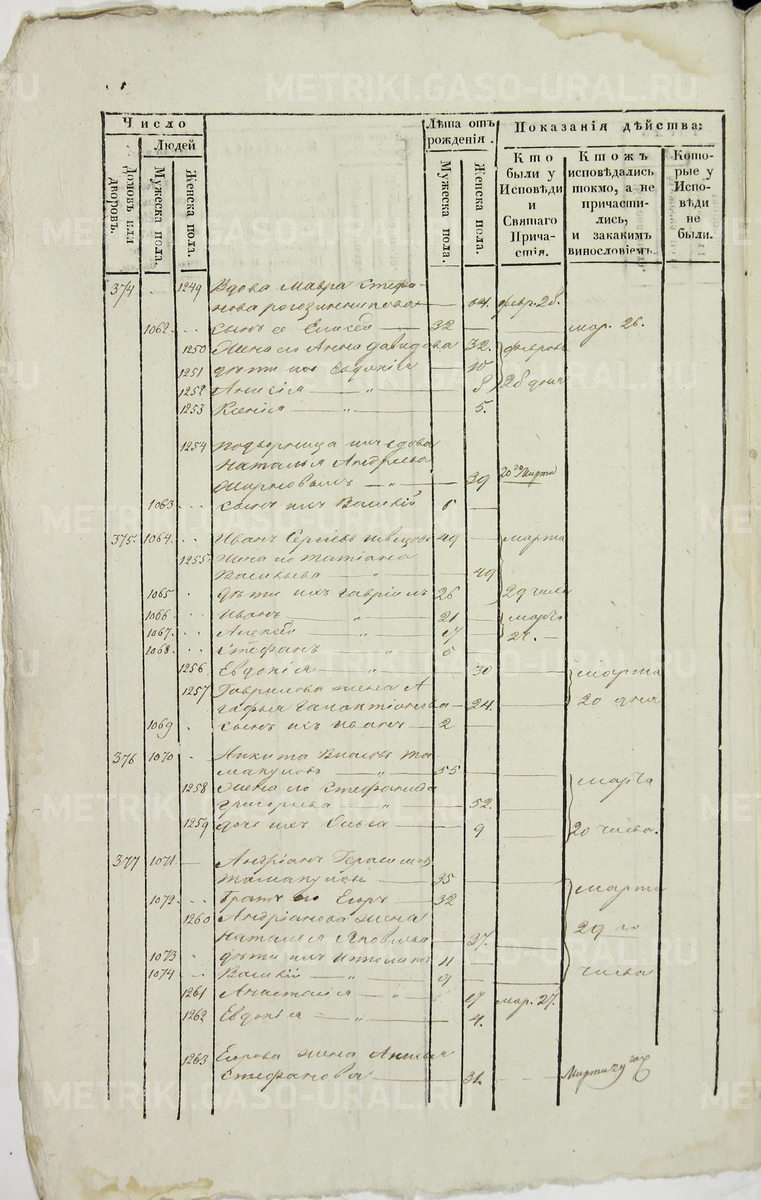 METRIKI.GASO-URAL.RU
Число
Людей
Домовъ или дворовъ.
Мужеска пола.
Женска пола.
Лѣта отъ рожденія.
Мужеска пола.
Женска пола.
Показанія дѣйства:
Кто были у Исповѣди и Святаго Причастія.
Ктожъ исповѣдались токмо, а не причастились, и закакимъ винословіемъ.
Которые у Исповѣди не были.
374 1249 Вдова Мавра Стефа-
нова февр. 28.
1062. сынъ ея Елисей 32 мар. 26.
1250 Жена его Анна Давидова 32.
1251 дѣти ихъ Евдокія 10
1252 Анисія " 8 28 дня
1253 Ксенія " 5.
1254 подворница ихъ вдова
Наталья Андреева
" 39 Марта
1063 сынъ ихъ Василій 6
375 1064 Иванъ Сергѣевъ 49 марта
1255 Жена его Татіана
Васильева " 49
1065 дѣти ихъ Гавріилъ 26 29 числа
1066 Иванъ " 21 марта
1067. Алексей " 17
1068 Стефанъ " 5
1256 Евдокія " 30 марта
1257 Гаврилова жена А
гафья Галактіонова 24. 20 дня
1069 сынъ ихъ Иванъ 2
376 1070 Никита Власовъ Та
макуловъ " 55 марта
1258 Жена его Стефанида
Григорьева " 52.
1259 дочь ихъ Ольга 9 20 числа.
377 1071 Андріанъ Герасимовъ
35
1072 Братъ его Егоръ 32 марта
1260 Андріанова жена
Наталья Яковлева 37. 29 го
1073 дѣти ихъ Ипполитъ 11
1074 Василій " 9 числа
1261 Анастасія " 17 мар. 27.
1262 Евдокія " 4.
1263 Егорова жена
Стефанова 31. Марта 29